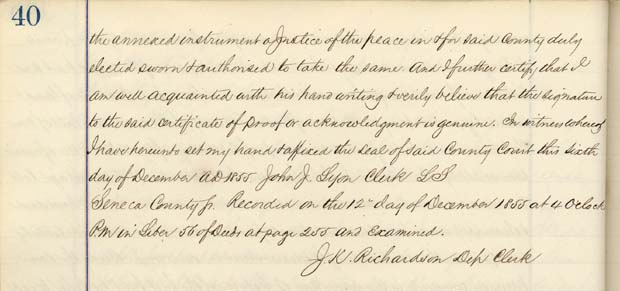 40
the annexed instrument a Justice of the peace in & for said County duly
elected sworn & authorised to take the same. And I further certify that I
am well acquainted with his hand writing & verily believe that the signature
to the said certificate of proof or acknowledgment is genuine. In witness whereof
I have hereunto set my hand & affixed the seal of said County Court this sixth
day of December A.D. 1855 John J. Lyon Clerk L.S
Seneca County Js. Recorded on the 12" day of December 1855 at 4 Oclock
P.M in Liber 56 of Deeds at page 255 and Examined.
J.K. Richardson Dep Clerk